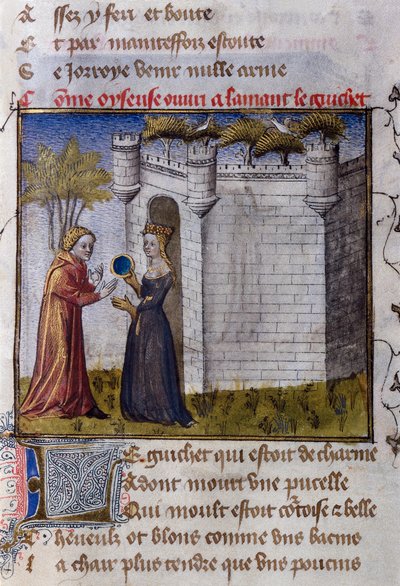 Assez y feri et boute
Et par maniteffoiz escoute
Se iorroye venir nulle arme
Cōme oyseuse ouvri a lamant le guichet
Le guichet qui estoit de charme
Adont mouri vne pucelle
Qui moult estoit cortoise & belle
Cheueulx ot blons comme vns bacins
La chair plus tendre que vns poucins